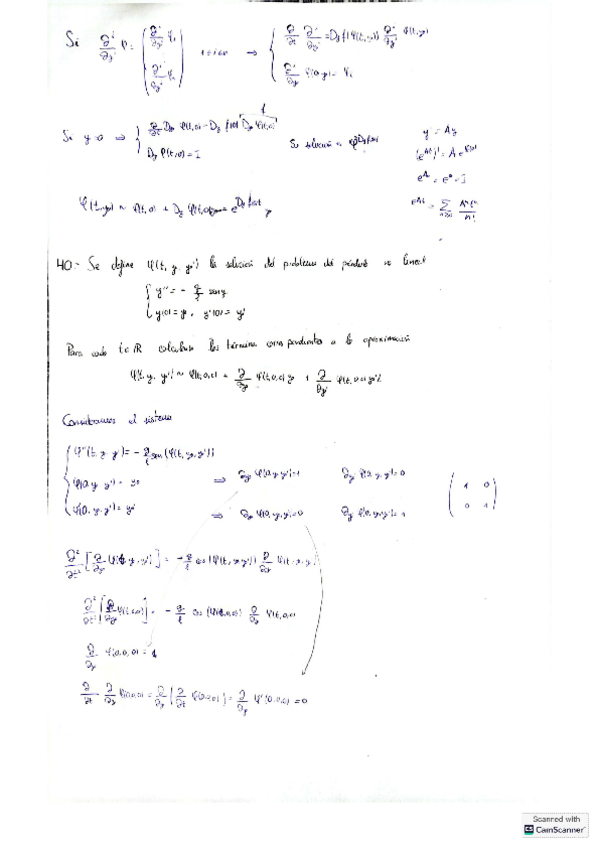 Si ∂ⁱ/∂yⁱ φ = (∂ⁱ/∂yⁱ φ₁ ⋮ ∂ⁱ/∂yⁱ φₙ) 1≤i≤n → { ∂/∂t ∂ⁱ/∂yⁱ = D_y f(φ(t,y)) ∂ⁱ/∂yⁱ φ(t,y)
Si y=0 ⇒ { ∂/∂t D_y φ(t,0) = D_y f(0) D_y φ(t,0)
D_y φ(t,0) = I
Su solución
y = Ay
e⁰ = I
e^{At} = Σ n≥0 Aⁿtⁿ/n!
φ(t,y) ≈ φ(t,0) + D_y φ(t,0)
40.- Se define φ(t, y, y') la solución del problema del péndulo no lineal
{ y'' = - g/l sen y
y(0) = y, y'(0) = y'
Para cada t∈ℝ calcular los términos correspondientes a la aproximación
φ(t, y, y') ≈ φ(t,0,0) + ∂/∂y φ(t,0,0) y + ∂/∂y' φ(t,0,0) y'
Consideramos el sistema
{ φ''(t, y, y') = - g/l sen (φ(t, y, y'))
φ(0, y, y') = y ⇒ ∂y φ(0,y,y') = 1 ∂y' φ(0,y,y') = 0
φ'(0, y, y') = y' ⇒ ∂y φ'(0,y,y') = 0 ∂y' φ'(0,y,y') = 1
(1 0
0 1)
∂²/∂t² [∂/∂y φ(t, y, y')] = - g/l cos (φ(t, y, y')) ∂/∂y φ(t, y, y')
∂²/∂t² [∂/∂y φ(t,0,0)] = - g/l cos (φ(t,0,0)) ∂/∂y φ(t,0,0)
∂/∂y φ(0,0,0) = 1
∂/∂t ∂/∂y φ(0,0,0) = ∂/∂y (∂/∂t φ(0,0,0)) = ∂/∂y φ'(0,0,0) = 0
Scanned with
CamScanner